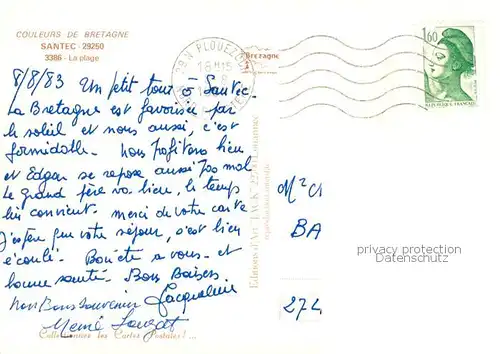 COULEURS DE BRETAGNE
SANTEC - 29250
3386 - La plage
29.N PLOUEZOC
18 H 15
Bretagne
1,60
REPUBLIQUE FRANÇAISE
8/8/83 Un petit tour à Santec.
La Bretagne est favorisée par
le soleil et nous aussi, c'est
formidable. Nous profitons bien
et Edgar se repose aussi pas mal
Le grand père va bien, le temps
lui convient. merci de votre carte
J'espère que votre séjour, s'est bien
écoulé. Bon été à vous. et
bonne santé. Bons Baisers
Jacqueline
Nos Bons Souvenirs
Collectionnez les Cartes Postales ! ...
Editions d'Art JACK
reproduction interdite
BA
274
privacy protection
Datenschutz